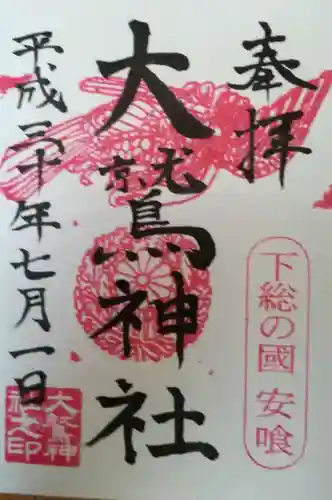 奉拝
大鷲神社
平成三十年七月一日
下総の國 安喰
大鷲神
社之印